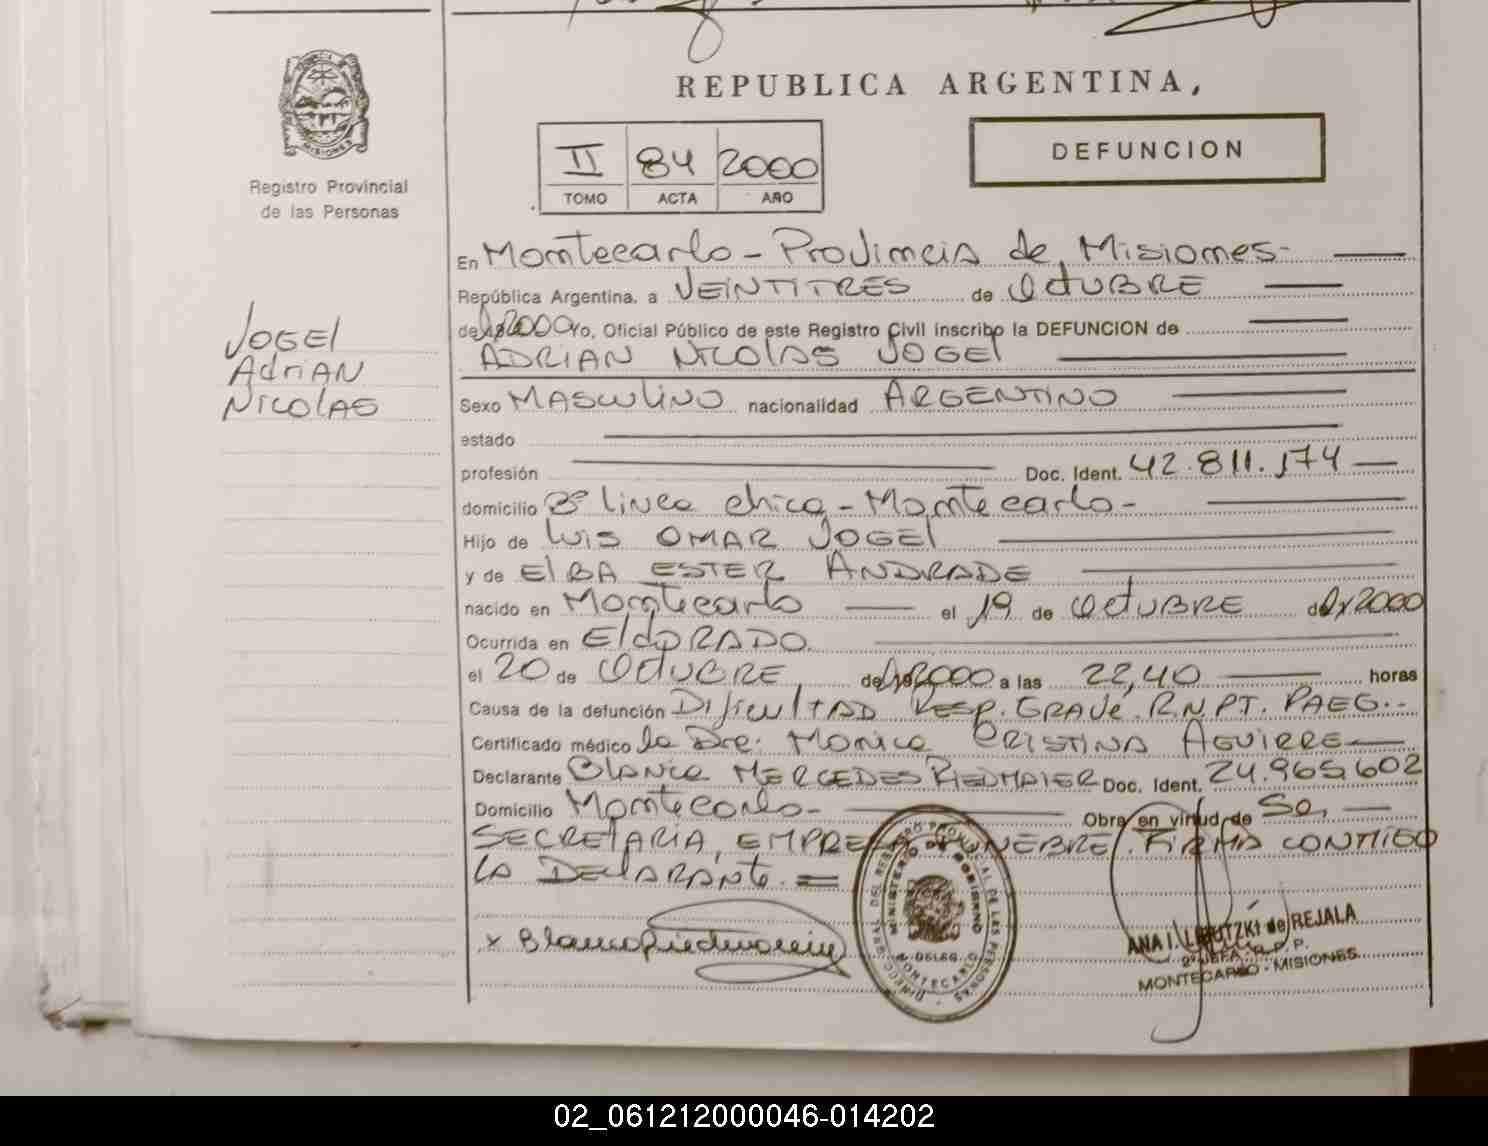 REPUBLICA ARGENTINA,
MISIONES
Registro Provincial
de las Personas
II 84 2000
TOMO ACTA AÑO
DEFUNCION
JOGEL
AdriAN
NicolAS
En Montecarlo - Provincia de Misiones-
República Argentina, a VEINTITRES de Octubre
de 2000 Yo, Oficial Público de este Registro Civil inscribo la DEFUNCION de
ADRIAN NICOLAS JOGEL
Sexo MASCULINO nacionalidad ARGENTINO
estado
profesión Doc. Ident. 42.811.174
domicilio 3º linea chica - Montecarlo-
Hijo de Luis OMAR JOGEL
y de ElBA ESTER ANDRADE
nacido en Montecarlo el 19 de OctUBRE de 2000
Ocurrida en ElDORADO.
el 20 de OctUBRE de 2000 a las 22,40 horas
Causa de la defunción Dificultad Resp. GRAVE. R.N.PT. PAEG.-
Certificado médico la Dra. Monica CRISTINA AGUIRRE
Declarante Blanca MERCEDES RIEDMAIER Doc. Ident. 24.965.602
Domicilio Montecarlo- Obra en virtud de Ser,
SECRETARIA, EMPRESA FUNEBRE. FIRMA CONMIGO
LA DEClARANte. =
x Blanca
DIRECC. GRAL. DEL REGISTRO PROVINCIAL DE LAS PERSONAS
MINISTERIO DE GOBIERNO
DELEG.
MONTECARLO
ANA I. de REJALA
2º JEFA R. P. P.
MONTECARLO - MISIONES
02_061212000046-014202